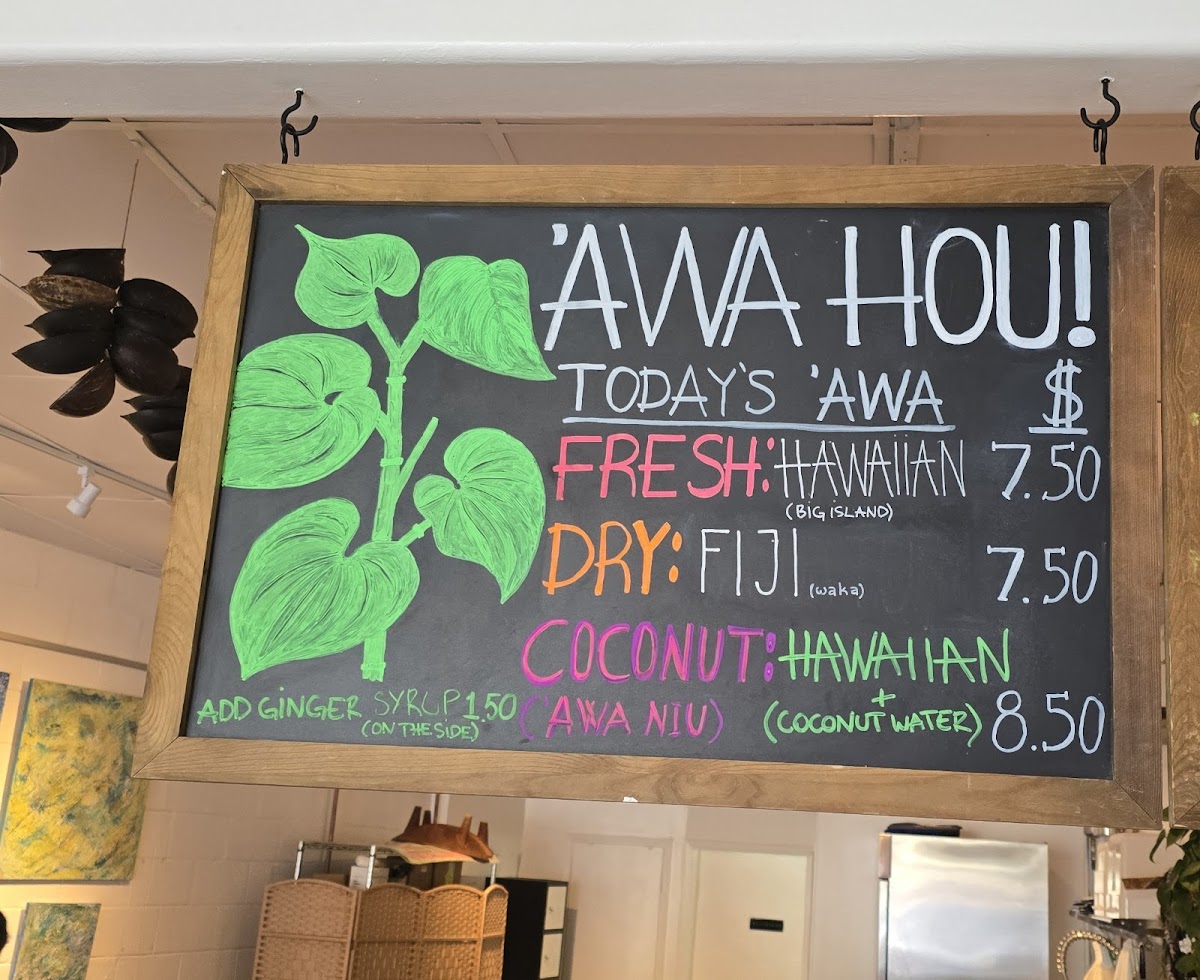 'AWA HOU!
TODAY'S 'AWA $
FRESH: HAWAIIAN 7.50
(BIG ISLAND)
DRY: FIJI (waka) 7.50
COCONUT: HAWAIIAN
+
('AWA NIU) (COCONUT WATER) 8.50
ADD GINGER SYRUP 1.50
(ON THE SIDE)